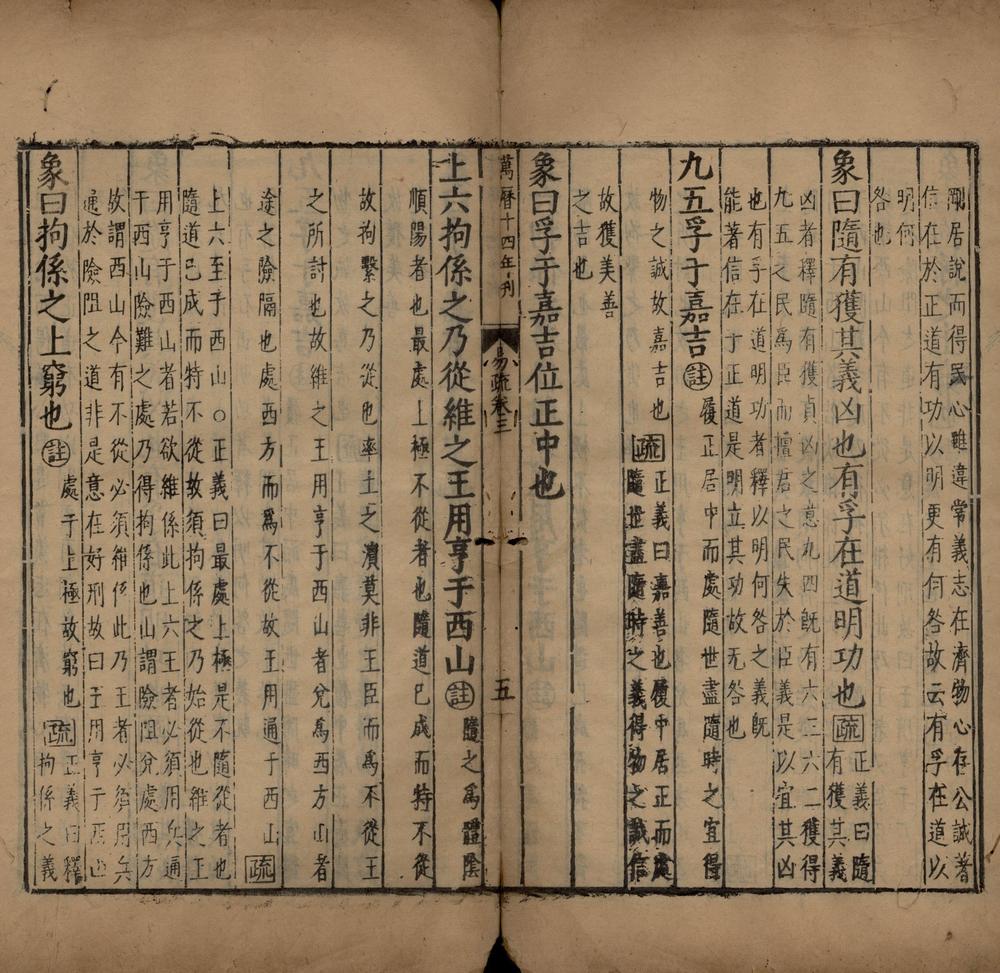 剛居說而得民心雖違常義志在濟物心存公誠著
信在於正道有功以明更有何咎故云有孚在道以
明何
咎也
象曰隨有獲其義凶也有孚在道明功也疏正義曰隨
有獲其義
凶者釋隨有獲貞凶之意九四旣有六三六二獲得
九五之民爲臣而擅君之民失於臣義是以宜其凶
也有孚在道明功者釋以明何咎之義旣
能著信在于正道是明立其功故无咎也
九五孚于嘉吉註履正居中而處隨世盡隨時之宜得
物之誠故嘉吉也疏正義曰嘉善也履中居正而處
隨世盡隨時之義得物之誠信
故獲美善
之吉也
象曰孚于嘉吉位正中也
萬曆十四年刊
易疏卷三
五
上六拘係之乃從維之王用亨于西山註隨之爲體陰
順陽者也最處上極不從者也隨道已成而特不從
故拘繫之乃從也率土之濱莫非王臣而爲不從王
之所討也故維之王用亨于西山者兌爲西方山者
途之險隔也處西方而爲不從故王用通于西山疏
上六至于西山○正義曰最處上極是不隨從者也
隨道已成而特不從故須拘係之乃始從也維之王
用亨于西山者若欲維係此上六王者必須用兵通
于西山險難之處乃得拘係也山謂險阻兌處西方
故謂西山今有不從必須維係此乃王者必須用兵
通於險阻之道非是意在好刑故曰王用亨于西山
象曰拘係之上窮也註處于上極故窮也疏正義曰釋
拘係之義